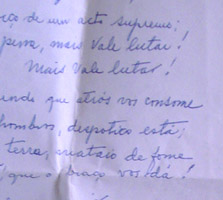 ço de um acto supremo;
pensa, mais vale lutar!
Mais vale lutar!
que atrás vos consome
hombros, despotico está;
terra, de fome
que o braço vos dá!